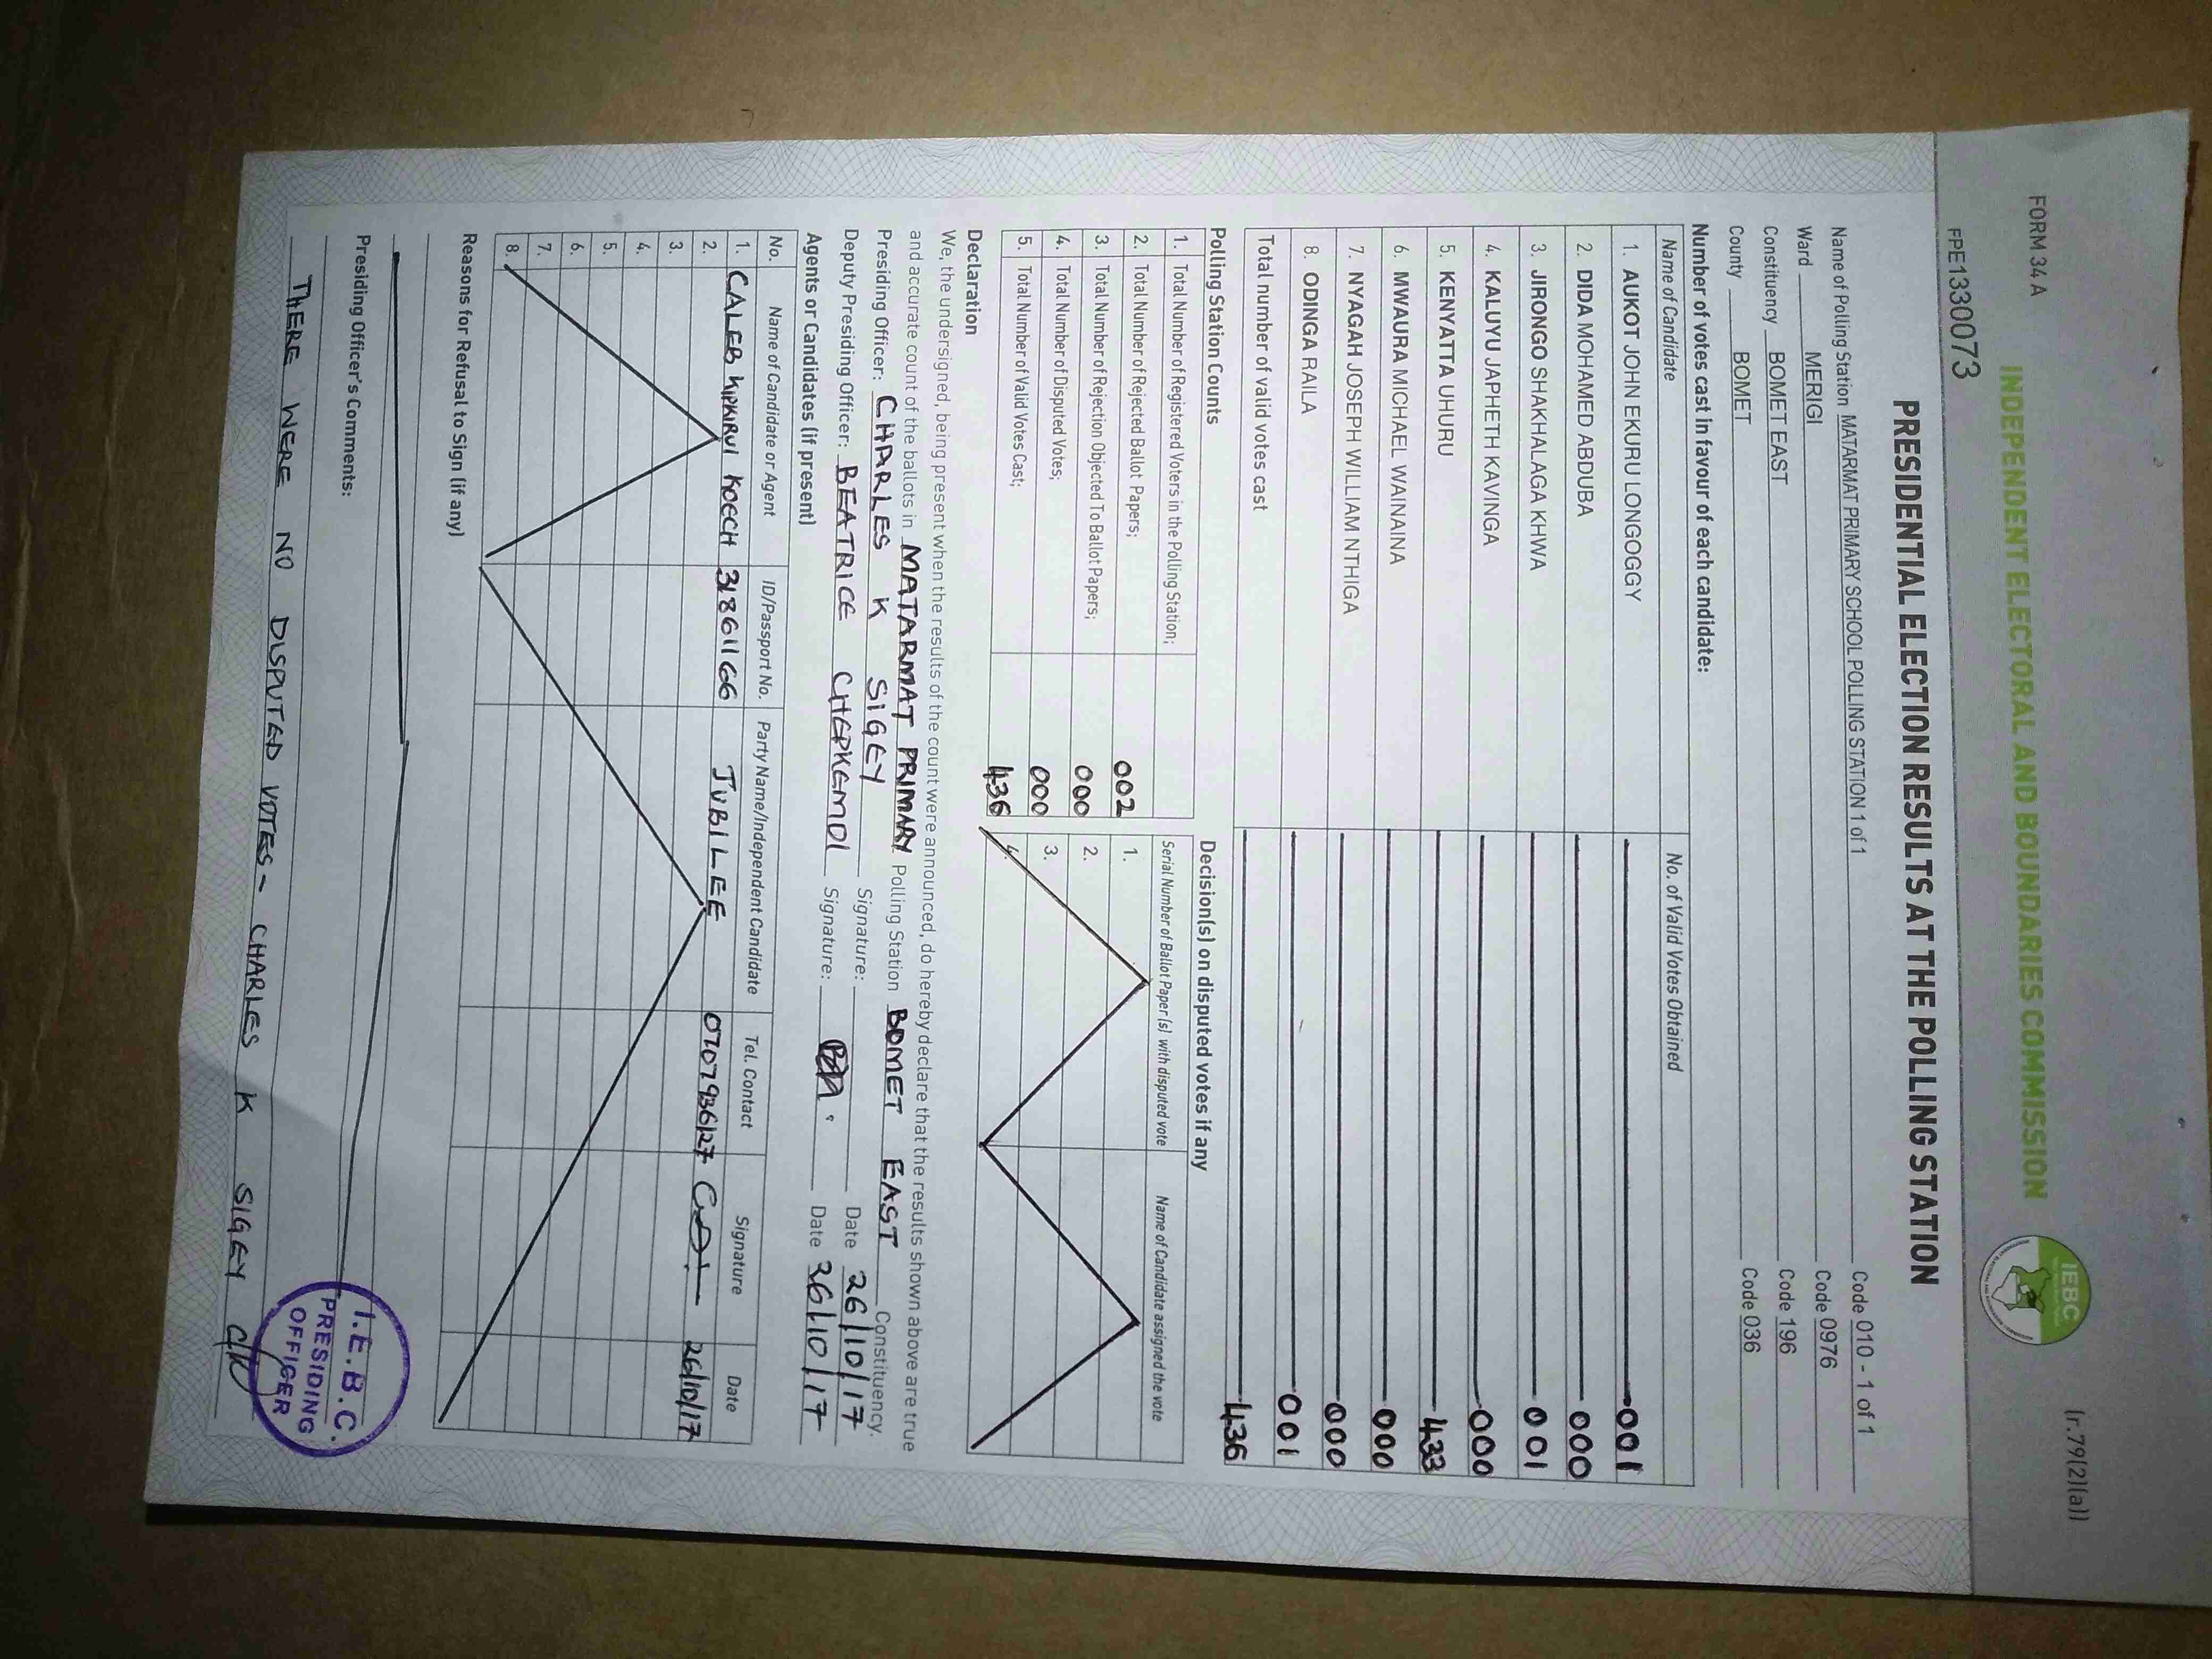 FORM 34 A
(r.79(2)(a))
INDEPENDENT ELECTORAL AND BOUNDARIES COMMISSION
IEBC
FPE1330073
PRESIDENTIAL ELECTION RESULTS AT THE POLLING STATION
Name of Polling Station MATARMAT PRIMARY SCHOOL POLLING STATION 1 of 1 Code 010 - 1 of 1
Ward MERIGI Code 0976
Constituency BOMET EAST Code 196
County BOMET Code 036
Number of votes cast in favour of each candidate:
Name of Candidate No. of Valid Votes Obtained
1. AUKOT JOHN EKURU LONGOGGY 001
2. DIDA MOHAMED ABDUBA 000
3. JIRONGO SHAKHALAGA KHWA 001
4. KALUYU JAPHETH KAVINGA 000
5. KENYATTA UHURU 433
6. MWAURA MICHAEL WAINAINA 000
7. NYAGAH JOSEPH WILLIAM NTHIGA 000
8. ODINGA RAILA 001
Total number of valid votes cast 436
Polling Station Counts Decision(s) on disputed votes if any
1. Total Number of Registered Voters in the Polling Station; Serial Number of Ballot Paper (s) with disputed vote Name of Candidate assigned the vote
2. Total Number of Rejected Ballot Papers; 002 1.
3. Total Number of Rejection Objected To Ballot Papers; 000 2.
4. Total Number of Disputed Votes; 000 3.
5. Total Number of Valid Votes Cast; 436 4.
Declaration
We, the undersigned, being present when the results of the count were announced, do hereby declare that the results shown above are true
and accurate count of the ballots in MATARMAT PRIMARY Polling Station BOMET EAST Constituency.
Presiding Officer: CHARLES K SIGEY Signature: Date 26/10/17
Deputy Presiding Officer: BEATRICE CHEPKEMOI Signature: Date 26/10/17
Agents or Candidates (if present)
No. Name of Candidate or Agent ID/Passport No. Party Name/Independent Candidate Tel. Contact Signature Date
1. CALEB KIPKURUI KOECH 31861166 JUBILEE 0707936127 26/10/17
2.
3.
4.
5.
6.
7.
8.
Reasons for Refusal to Sign (if any)
Presiding Officer's Comments:
THERE WERE NO DISPUTED VOTES - CHARLES K SIGEY
I.E.B.C.
PRESIDING
OFFICER